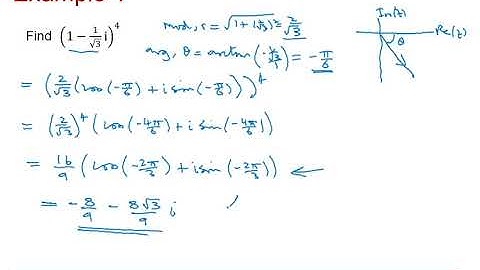 Find (1 − 1/√3 i)^4
mod, r = √(1 + (1/√3)²) = 2/√3
arg, θ = arctan(−1/√3 / 1) = −π/6
Im(z)
Re(z)
θ
= (2/√3 (cos(−π/6) + i sin(−π/6)))^4
= (2/√3)^4 (cos(−4π/6) + i sin(−4π/6))
= 16/9 (cos(−2π/3) + i sin(−2π/3)) ←
= −8/9 − 8√3/9 i